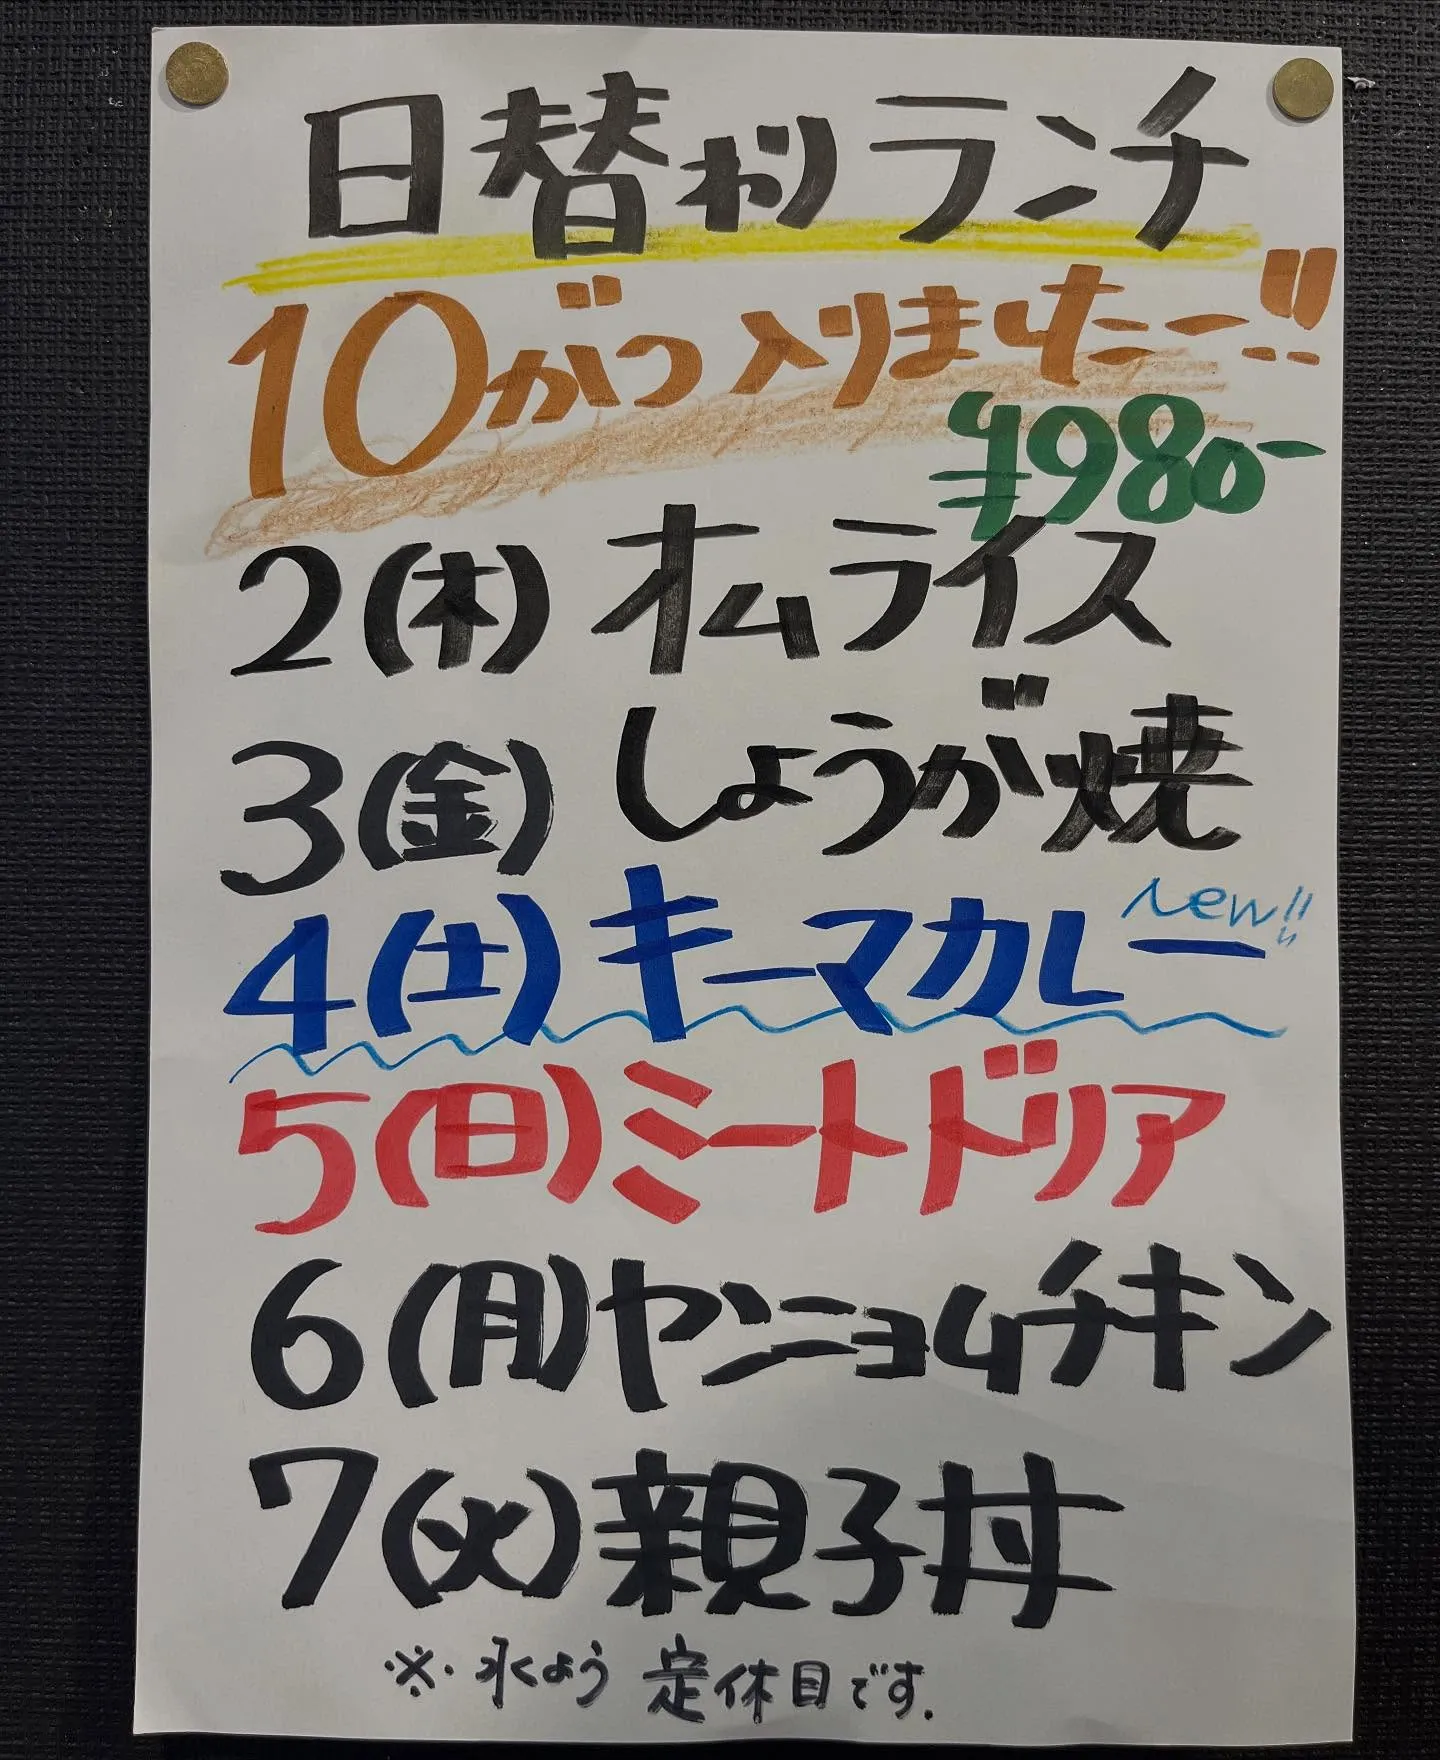 日替わりランチ
10がつ入りましたー!!
¥980-
2(木) オムライス
3(金) しょうが焼
New!!
4(土) キーマカレー
5(日) ミートドリア
6(月) ヤンニョムチキン
7(火) 親子丼
※・水よう 定休日です.